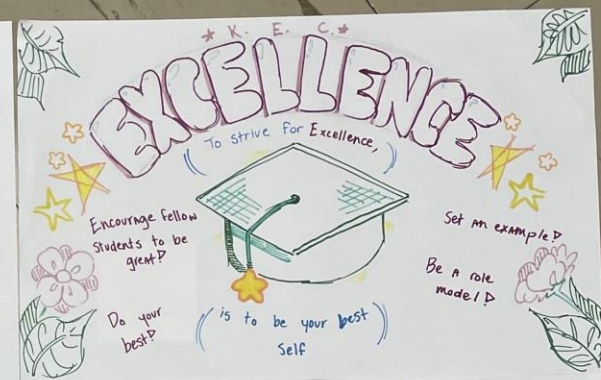 * K. E. C. *
EXCELLENCE
To strive for Excellence,
Encourage fellow
students to be
great!
Do your
best!
Set an example!
Be a role
model!
is to be your best
self